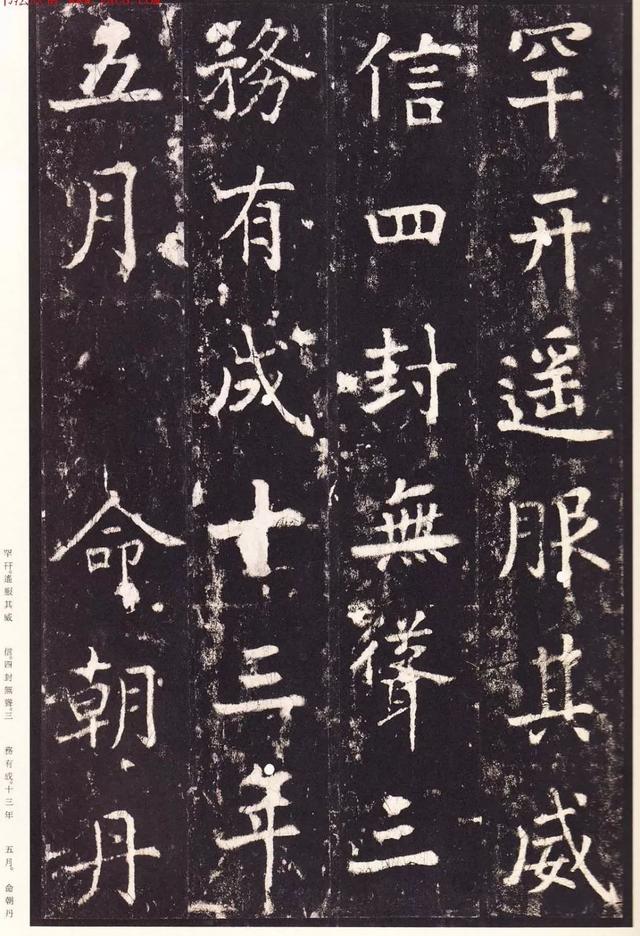 罕开遥服其威
信四封無聳三
務有成十三年
五月命朝丹
罕幵。遙服其威 信。四封無聳。三 務有成。十三年 五月。命朝丹